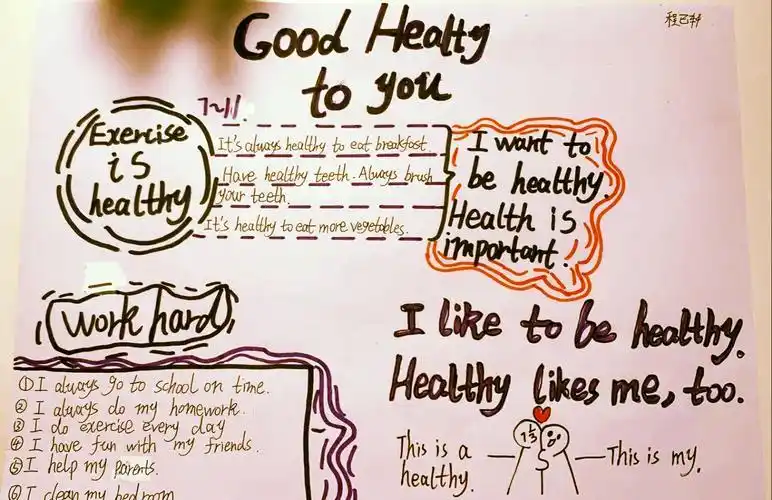 Good Healty
to you
程己轩
7~11.
Exercise
is
healthy
It's always healthy to eat breakfast.
Have healthy teeth. Always brush
your teeth.
It's healthy to eat more vegetables.
I want to
be healthy.
Health is
important.
Work hard
① I always go to school on time.
② I always do my homework.
③ I do exercise every day
④ I have fun with my friends.
⑤ I help my parents.
⑥ I clean my bedroom
I like to be healthy.
Healthy likes me, too.
This is a
healthy.
This is my.